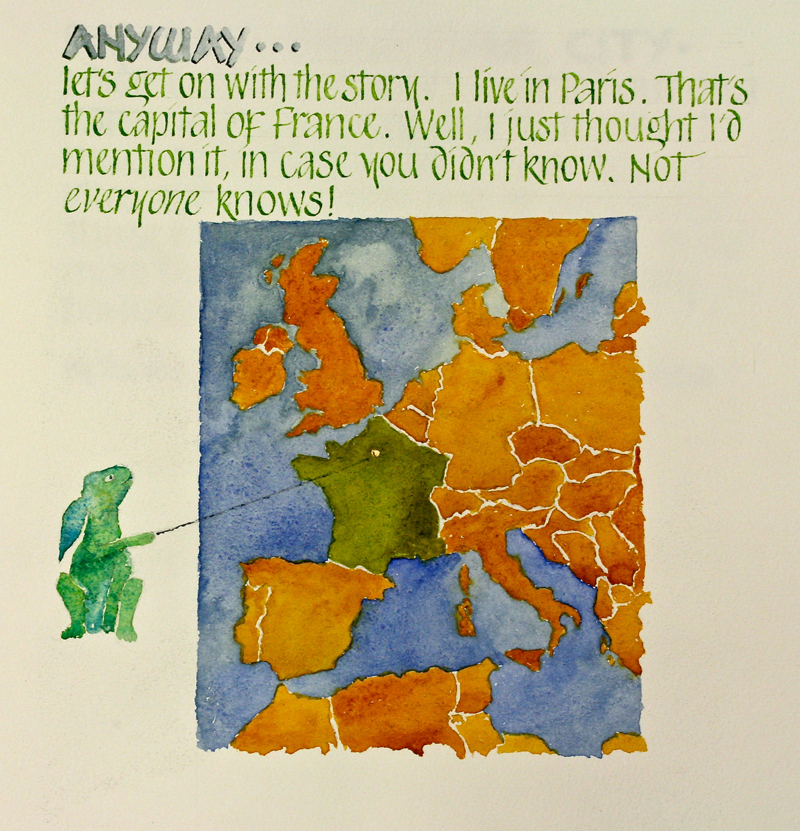 ANYWAY...
let's get on with the story. I live in Paris. That's
the capital of France. Well, I just thought I'd
mention it, in case you didn't know. Not
everyone knows!